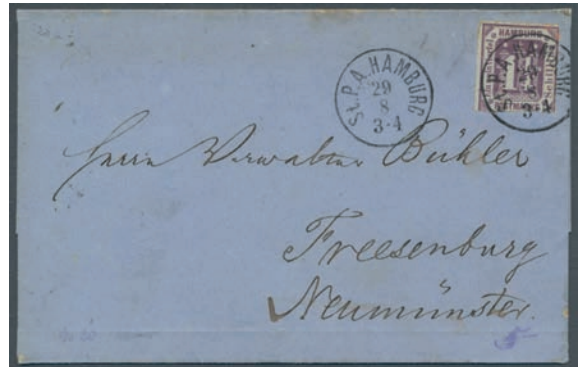 HAMBURG
St. P. A. HAMBURG
29
8
3-4
St. P. A. HAMBURG
29
8
3-4
Herrn Verwalter Bühler
Freesenburg
Neumünster.